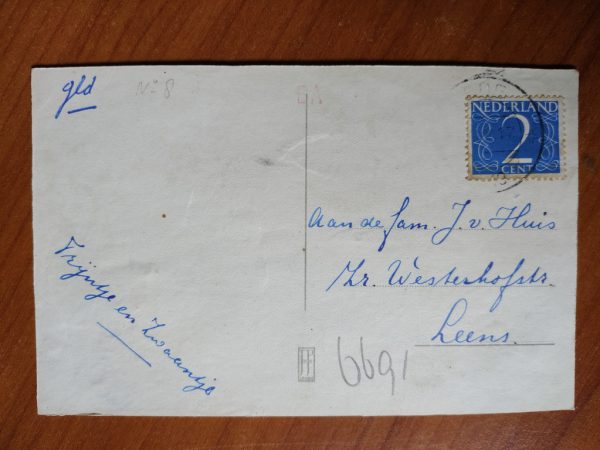 gld
No 8
NEDERLAND
2
CENT
Aan de fam. J. v. Huis
Zr. Westerhofstr.
Leens.
Trijntje en Zwaantje
6691